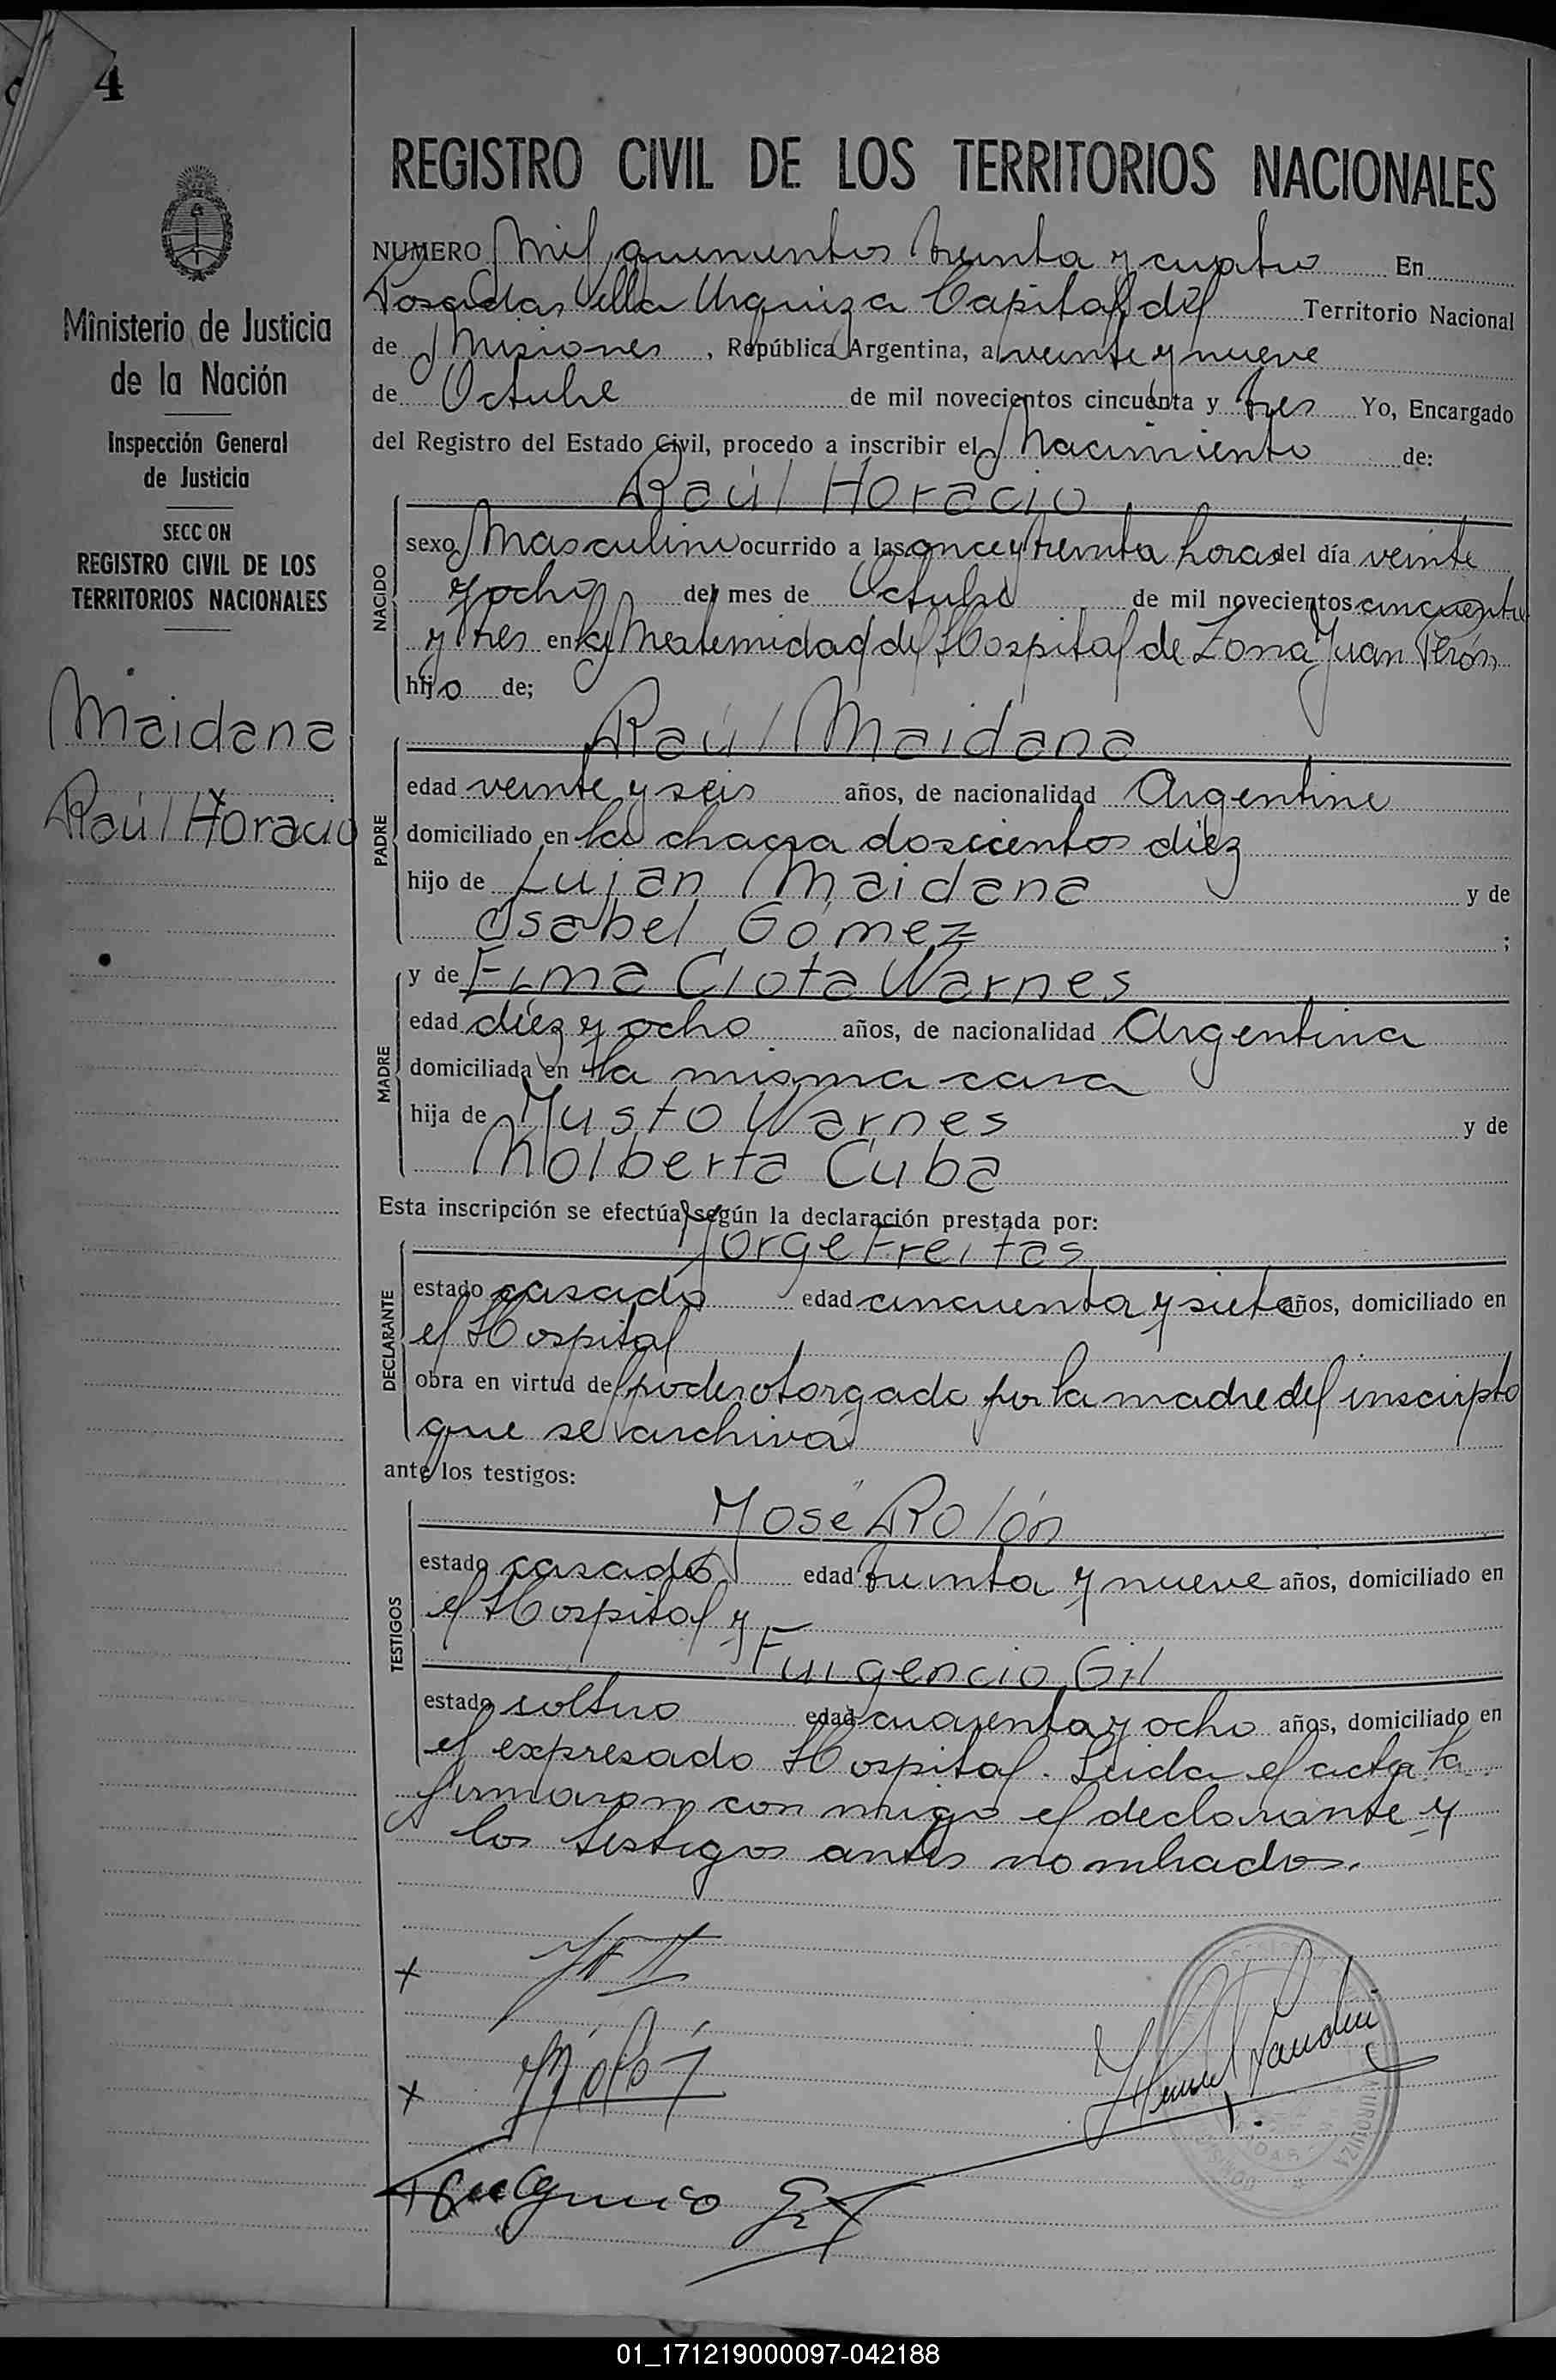 4
REGISTRO CIVIL DE LOS TERRITORIOS NACIONALES
Ministerio de Justicia
de la Nación
Inspección General
de Justicia
SECC ON
REGISTRO CIVIL DE LOS
TERRITORIOS NACIONALES
Maidana
Raúl Horacio
NUMERO Mil quinientos treinta y cuatro En
Posadas Villa Urquiza Capital del Territorio Nacional
de Misiones, República Argentina, a veinte y nueve
de Octubre de mil novecientos cincuenta y tres Yo, Encargado
del Registro del Estado Civil, procedo a inscribir el Nacimiento de:
Raúl Horacio
NACIDO
sexo Masculino ocurrido a las once y treinta horas del día veinte
y ocho del mes de Octubre de mil novecientos cincuenta
y tres en la Maternidad del Hospital de Zona Juan Perón
hijo de;
Raúl Maidana
PADRE
edad veinte y seis años, de nacionalidad Argentine
domiciliado en la chacra doscientos diez
hijo de Lujan Maidana y de
Isabel Gómez ;
y de Elma Clota Warnes
MADRE
edad diez y ocho años, de nacionalidad Argentina
domiciliada en la misma casa
hija de Justo Warnes y de
Molberta Cuba
Esta inscripción se efectúa según la declaración prestada por:
Jorge Freitas
DECLARANTE
estado casado edad cincuenta y siete años, domiciliado en
el Hospital
obra en virtud del poder otorgado por la madre del inscripto
que se archiva
ante los testigos:
José Rolón
TESTIGOS
estado casado edad treinta y nueve años, domiciliado en
el Hospital y
Fulgencio Gil
estado soltero edad cuarenta y ocho años, domiciliado en
el expresado Hospital. Leida el acta la
firmaron con migo el declarante y
los testigos antes nombrados.
x
x
Fulgencio Gil
URQUIZA
01_171219000097-042188